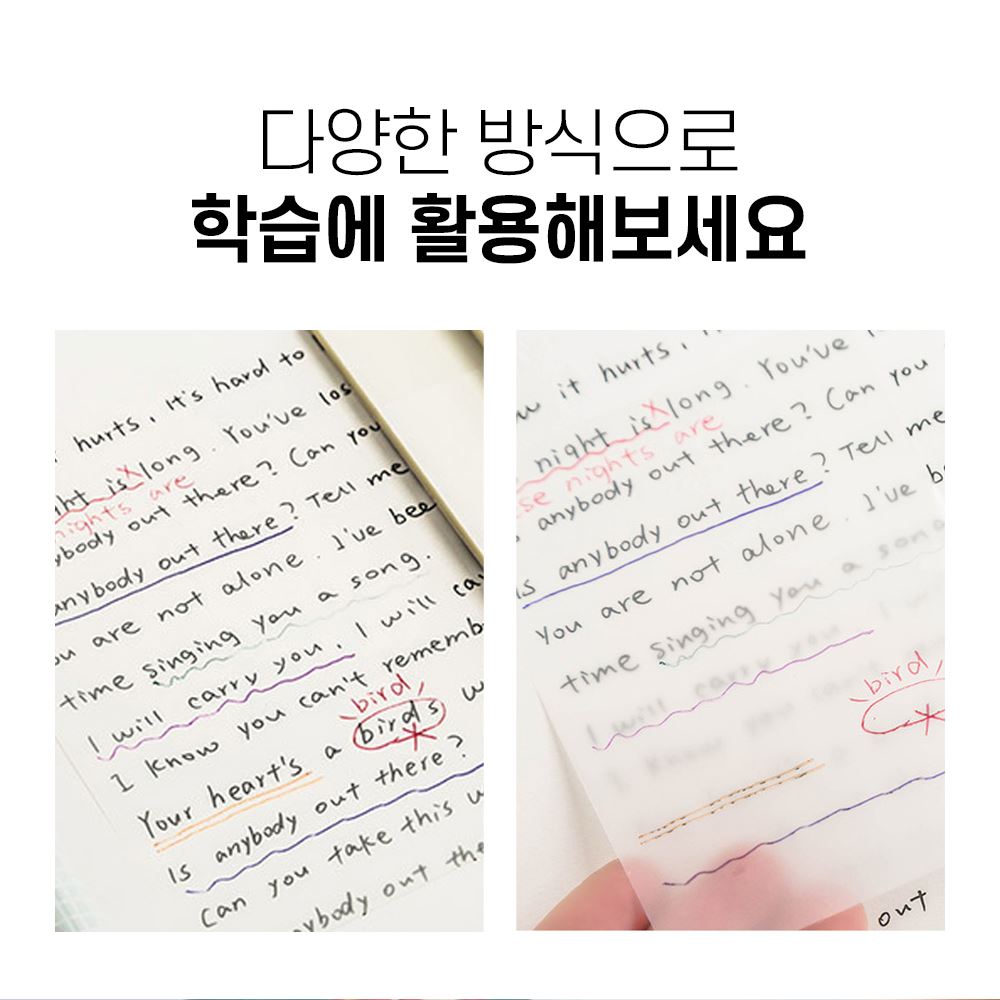 다양한 방식으로
학습에 활용해보세요
hurts, It's hard to
ght is long. You've los
nights are
ybody out there? Can you
anybody out there? Tell me
ou are not alone. I've bee
time singing you a song.
I will carry you, I will ca
bird
I know you can't rememb
a birds w
Your heart's
Is anybody out there?
Can you take this w
nybody out the
w it hurts,
night is long. You've l
se nights are
anybody out there? Can you
is anybody out there? Tell me
You are not alone. I've b
time singing you a song
I will carry you I w
bird
out